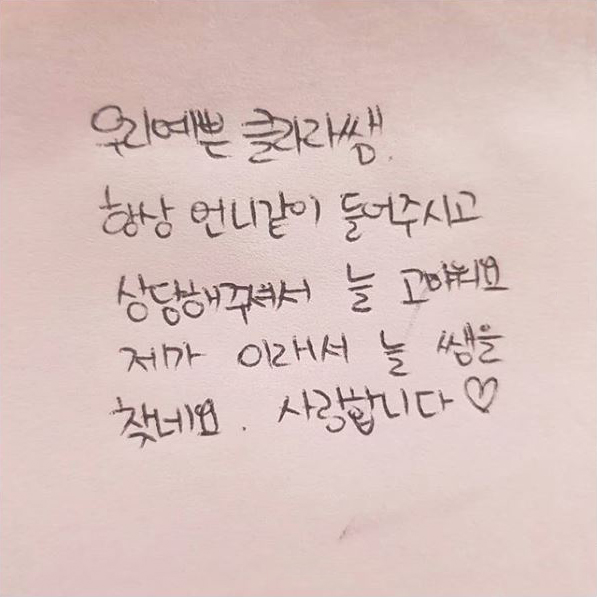 우리예쁜 클라라쌤.
항상 언니같이 들어주시고
상담해주셔서 늘 고마워요
제가 이래서 늘 쌤을
찾네요. 사랑합니다♡